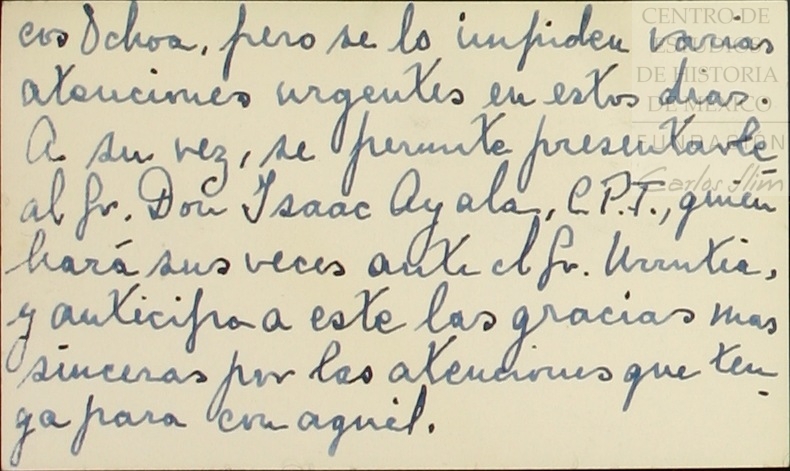 cos Ochoa, pero se lo impiden varias
atenciones urgentes en estos dias.
A su vez, se permite presentarle
al Sr. Don Isaac Ayala, C.P.T., quien
hará sus veces ante el Sr. Urrutia,
y anticipa a este las gracias mas
sinceras por las atenciones que ten-
ga para con aquél.
CENTRO DE
ESTUDIOS
DE HISTORIA
DE MEXICO
FUNDACIÓN
Carlos Slim